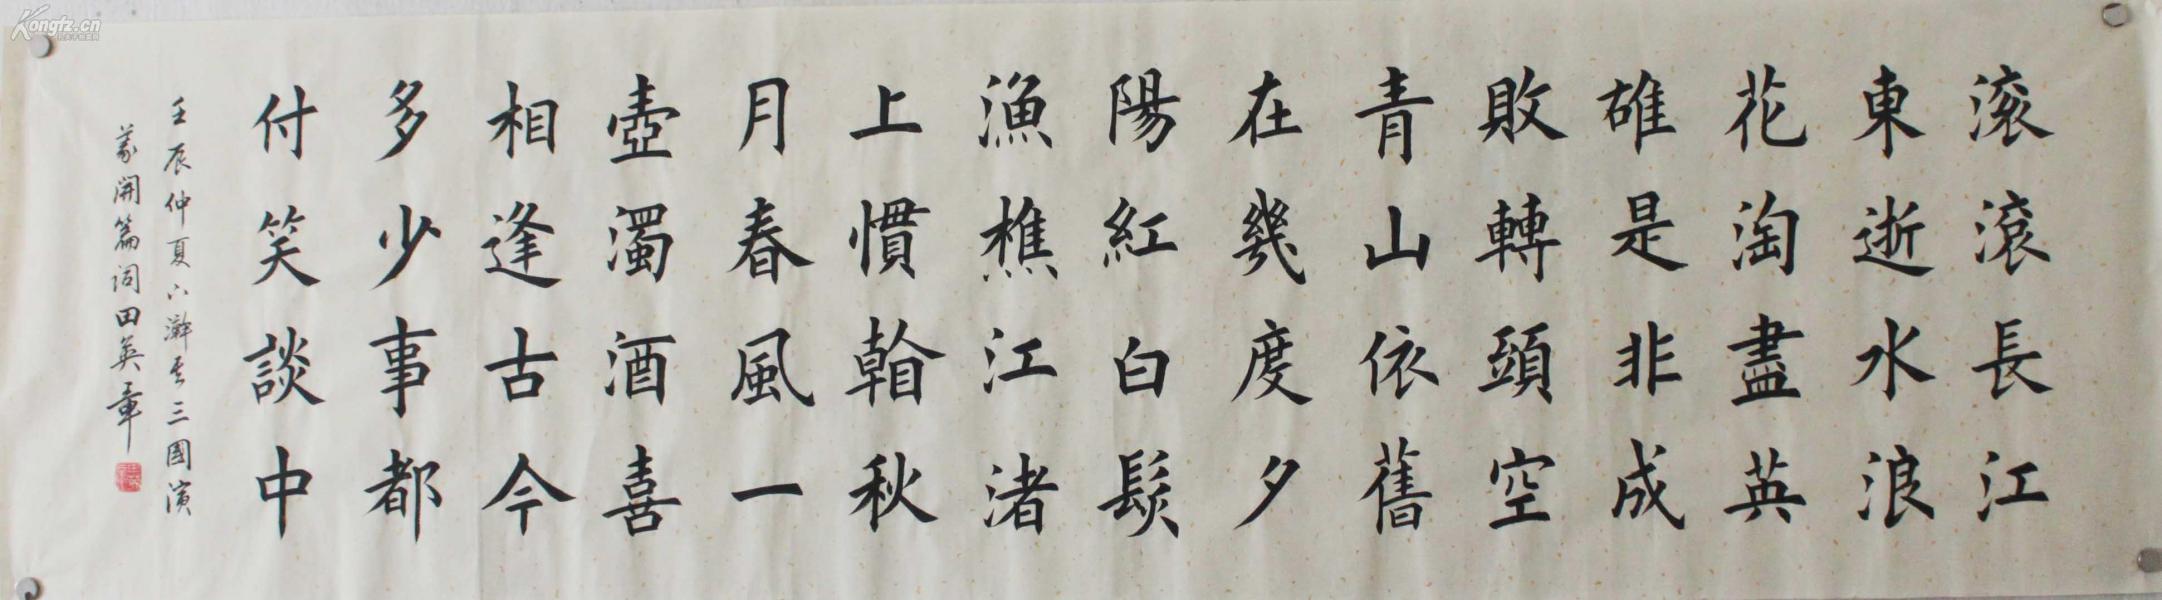 滚滾長江
東逝水浪
花淘盡英
雄是非成
敗轉頭空
青山依舊
在幾度夕
陽紅白髮
漁樵江渚
上慣看秋
月春風一
壺濁酒喜
相逢古今
多少事都
付笑談中
壬辰仲夏三國演
義開篇词田英章
Kongfz.cn